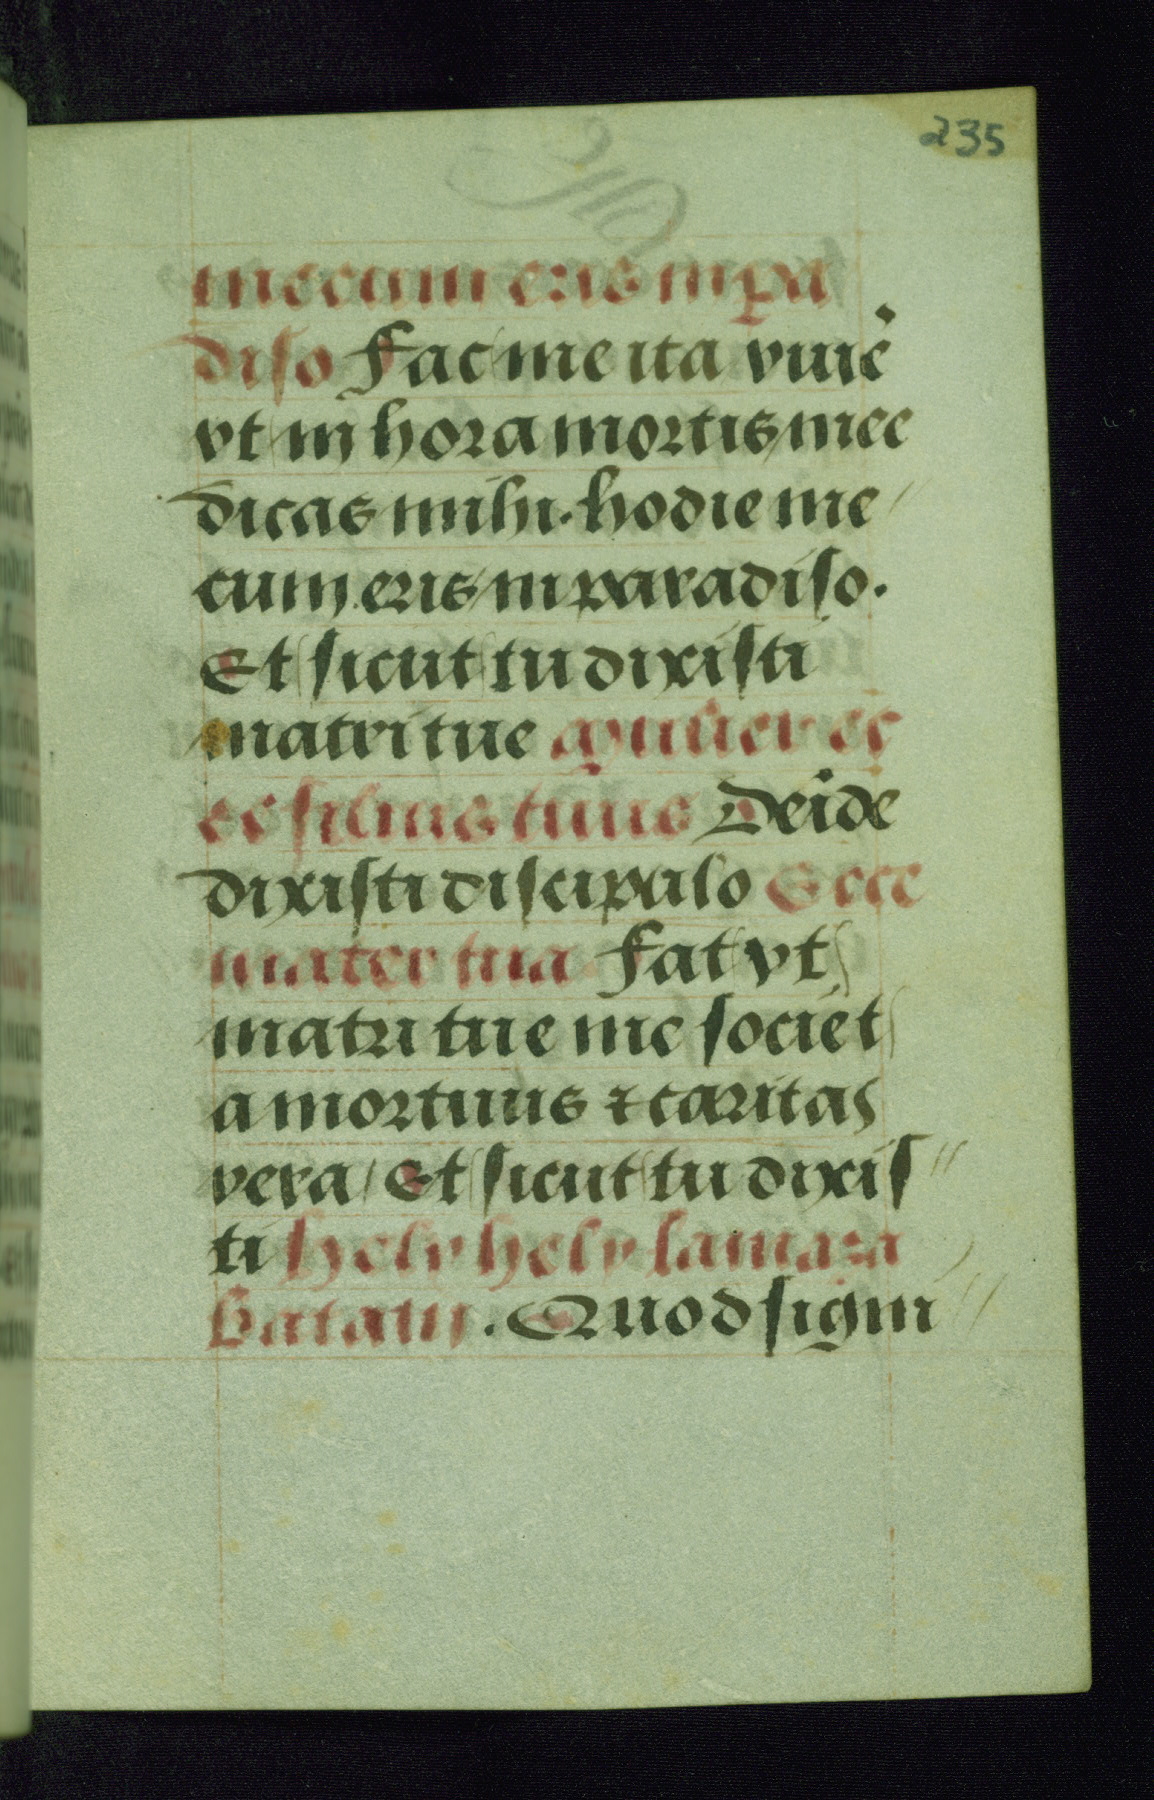 235
mecum eris in pa
diso Fac me ita viuē
vt in hora mortis mee
dicas mihi. hodie me
cum eris in paradiso.
Et sicut tu dixisti
matri tue
filius tuus Deīde
dixisti discipulo Ecce
mater tua Fat vt
matri tue me societ
amor tuus ⁊ caritas
vera Et sicut tu dixis
ti hely hely lamaza
batani. Quod signi